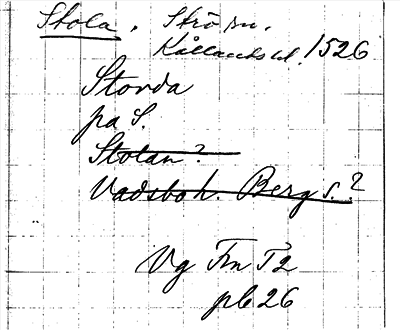 Stola, Strösn.
Kållands hd. 1526
Storda
pa S.
Stolan?
Vadsbo h. Berg s.?
Vg Fm T2
pl 26